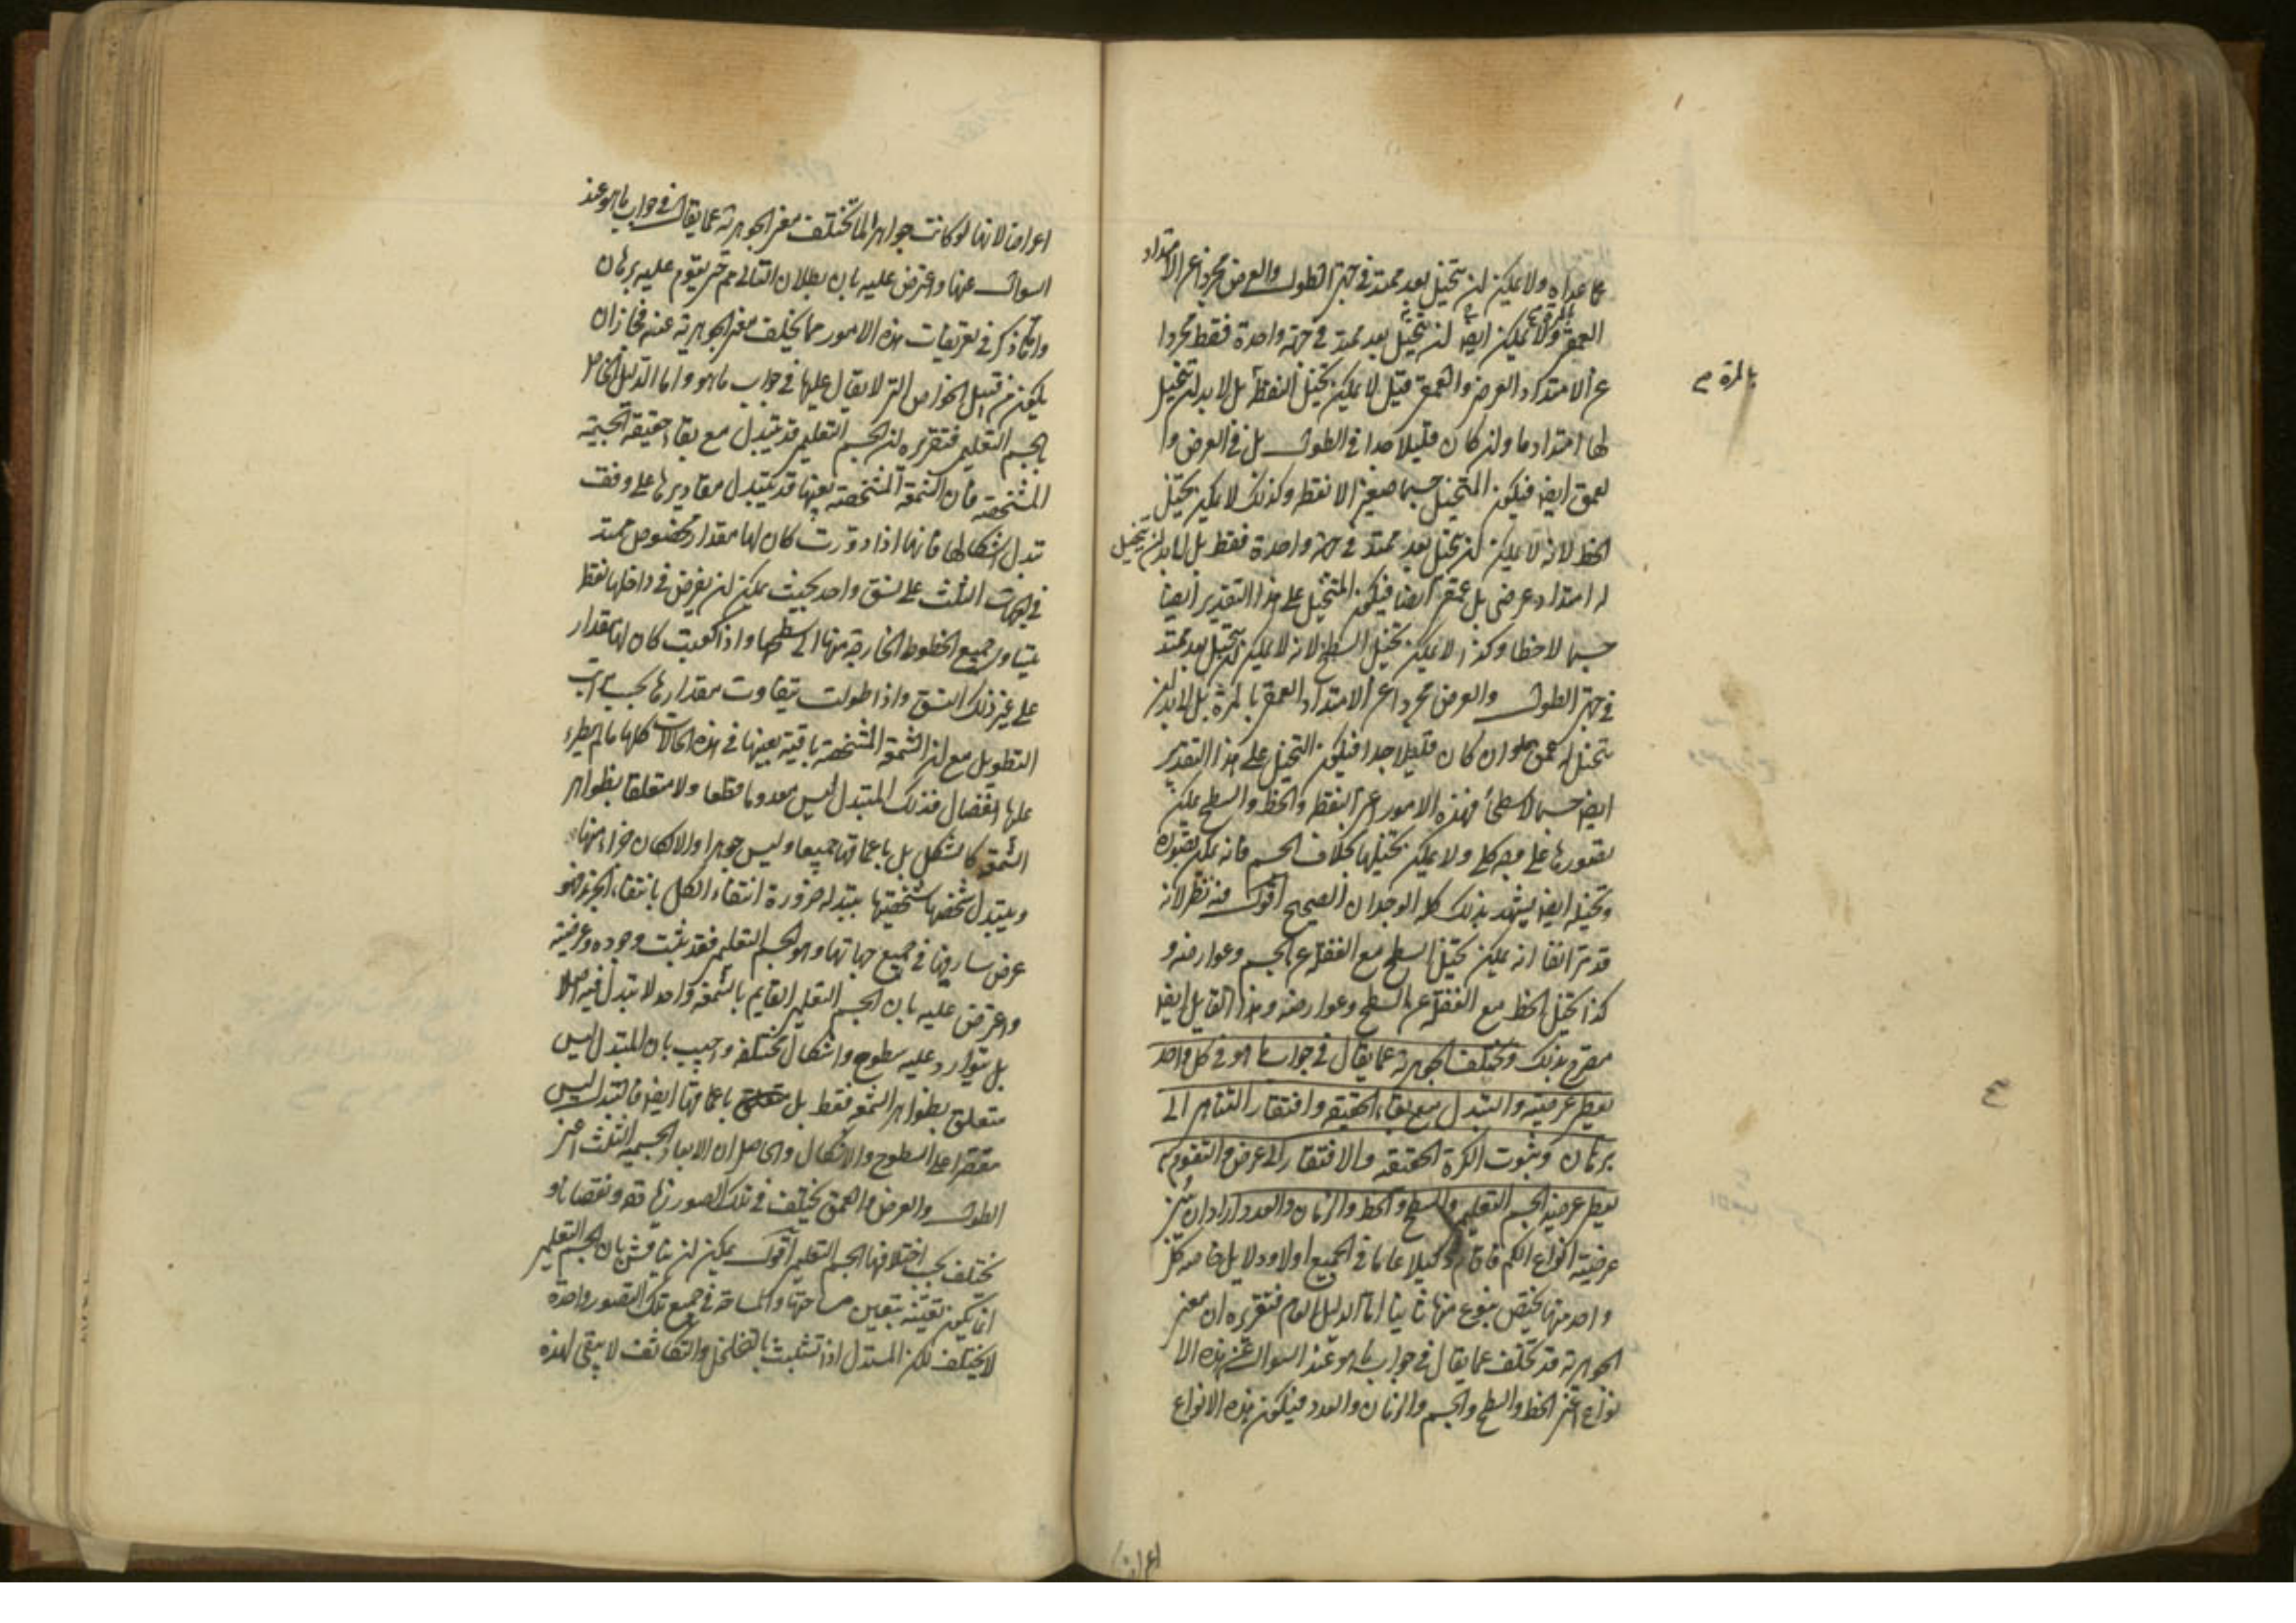 عما عداه ولا يمكن ان يتخيل بعد ممتد في جهتي الطول والعرض مجردا عن الامتداد
العمقي ولا يمكن ايضا ان يتخيل بعد ممتد في جهة واحدة فقط مجردا
عن الامتداد العرضي والعمقي قيل لا يمكن تخيل النقطة بل لا بد ان يتخيل
لها امتداد ما وان كان قليلا جدا في الطول بل في العرض وا
لعمق ايضا فيكون المتخيل جسما صغيرا لا نقطة وكذلك لا يمكن تخيل
الخط لانه لا يمكن ان يتخيل بعد ممتد في جهة واحدة فقط بل لابد ان يتخيل
له امتداد عرضي بل عمقي ايضا فيكون المتخيل على هذا التقدير ايضا
جسما لا خطا وكذا لا يمكن تخيل السطح لانه لا يمكن ان يتخيل بعد ممتد
في جهتي الطول والعرض مجردا عن الامتداد العمقي بالمرة بل لابد ان
يتخيل له عمق ولو ان كان قليلا جدا فيكون المتخيل على هذا التقدير
ايضا جسما لا سطحا فهذه الامور اعني النقطة والخط والسطح يمكن
تصورها على وجه كلي ولا يمكن تخيلها بخلاف الجسم فانه يمكن تصوره
وتخيله ايضا يشهد بذلك كله الوجدان الصحيح اقول فيه نظر لانه
قد مر انفا انه يمكن تخيل السطح مع الغفلة عن الجسم وعوارضه و
كذا تخيل الخط مع الغفلة عن السطح وعوارضه وهذا القايل ايضا
مصرح بذلك وتختلف الجوهرية عما يقال في جواب ما هو في كل واحد
يعطي عرضيته والتبدل مع بقاء الحقيقة وافتقار التناهي الى
برهان وثبوت الكرة الحقيقة والافتقار الى عرض والتقوم به
يعطي عرضية الجسم التعليمي والسطح والخط والزمان والعدد اراد ان يبين
عرضية انواع الكم فاقام دليلا عاما في الجميع اولا ودلايل خاصة كل
واحد منها يختص بنوع منها ثانيا اما الدليل العام فتقريره ان معنى
الجوهرية قد تختلف عما يقال في جواب ما هو عند السوال عن هذه الا
نواع اعني الخط والسطح والجسم والزمان والعدد فيكون هذه الانواع
بالمرة م
اعراضا
اعراضا لانها لو كانت جواهر لما تختلف معنى الجوهرية عما يقال في جواب ما هو عند
السوال عنها واعترض عليه بان بطلان التالي مم حتى يقوم عليه برهان
وانما ذكر في تعريفات هذه الامور مما يختلف معنى الجوهرية عنه فجاز ان
يكون من قبيل الخواص التي لا يقال عليها في جواب ما هو واما الدليل الخاص
بالجسم التعليمي فتقريره ان الجسم التعليمي قد يتبدل مع بقاء حقيقة الجسمية
المشخصة فان الشمعة المشخصة بعينها قد يتبدل مقاديرها على وفق
تبدل اشكالها فانها اذا دورت كان لها مقدار مخصوص ممتد
في الجهات الثلث على نسق واحد بحيث يمكن ان يفرض في داخلها نقطة
يتساوى جميع الخطوط الخارجة منها الى سطحها واذا كعبت كان لها مقدار
على غير ذلك النسق واذا طولت يتفاوت مقدارها بحسب مراتب
التطويل مع ان الشمعة المشخصة باقية بعينها في هذه الحالات كلها ما لم يطرء
عليها انفصال فذلك المتبدل ليس معدوما قطعا ولا متعلقا بظواهر
الشمعة كالشكل بل باعماقها جميعا وليس جوهرا والا لكان جزاء منها
ويتبدل شخصها بشخصيتها بتبدله ضرورة انتفاء الكل بانتفاء الجزء فهو
عرض سار فيها في جميع جهاتها وهو الجسم التعليمي فقد ثبت وجوده وعرضيته
واعترض عليه بان الجسم التعليمي القايم بالشمعة واحد لا تبدل فيه اصلا
بل يتوارد عليه سطوح واشكال مختلفة واجيب بان المتبدل ليس
متعلق بظواهر الشمع فقط بل متعلق باعماقها ايضا فالتبدل ليس
مقتصرا على السطوح والاشكال والحاصل ان الابعاد الجسمية الثلث اعني
الطول والعرض والعمق يختلف في تلك الصور زيادة ونقصانا و
تختلف بحسب اختلافها الجسم التعليمي اقول يمكن ان يناقش بان الجسم التعليمي
انما يكون تعينه بتعين مساحتها والمساحة في جميع تلك الصور واحدة
لا يختلف لكن المستدل اذا تشبث بالتخلخل والتكاثف لا يبقى لهذه